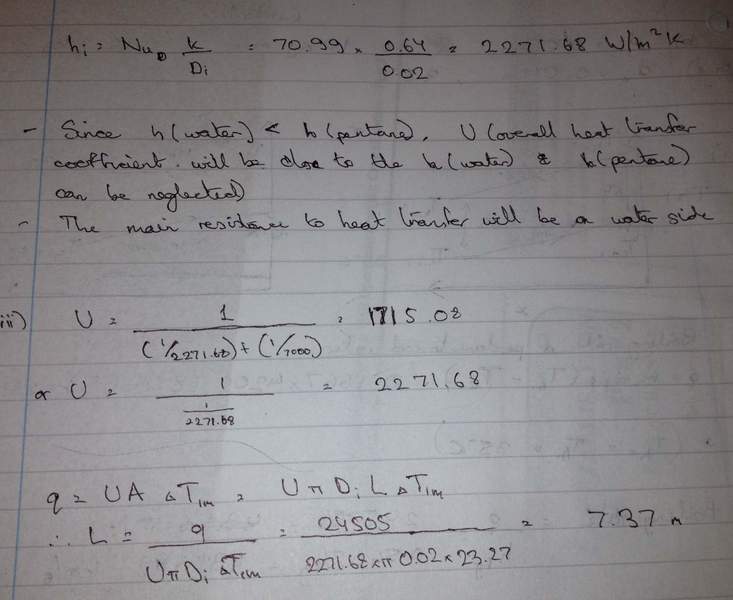 hi = Nu_D k/Di = 70.99 × 0.64/0.02 = 2271.68 W/m²K
- Since h(water) < h(pentane), U (overall heat transfer
coefficient will be close to the h(water) & h(pentane)
can be neglected)
- The main resistance to heat transfer will be on water side
iii) U = 1/((1/2271.68)+(1/7000)) = 1715.08
or U = 1/(1/2271.68) = 2271.68
q = UA ΔTlm = UπDi L ΔTlm
∴ L = q/(UπDi ΔTlm) = 24505/(2271.68×π×0.02×23.27) = 7.37 m